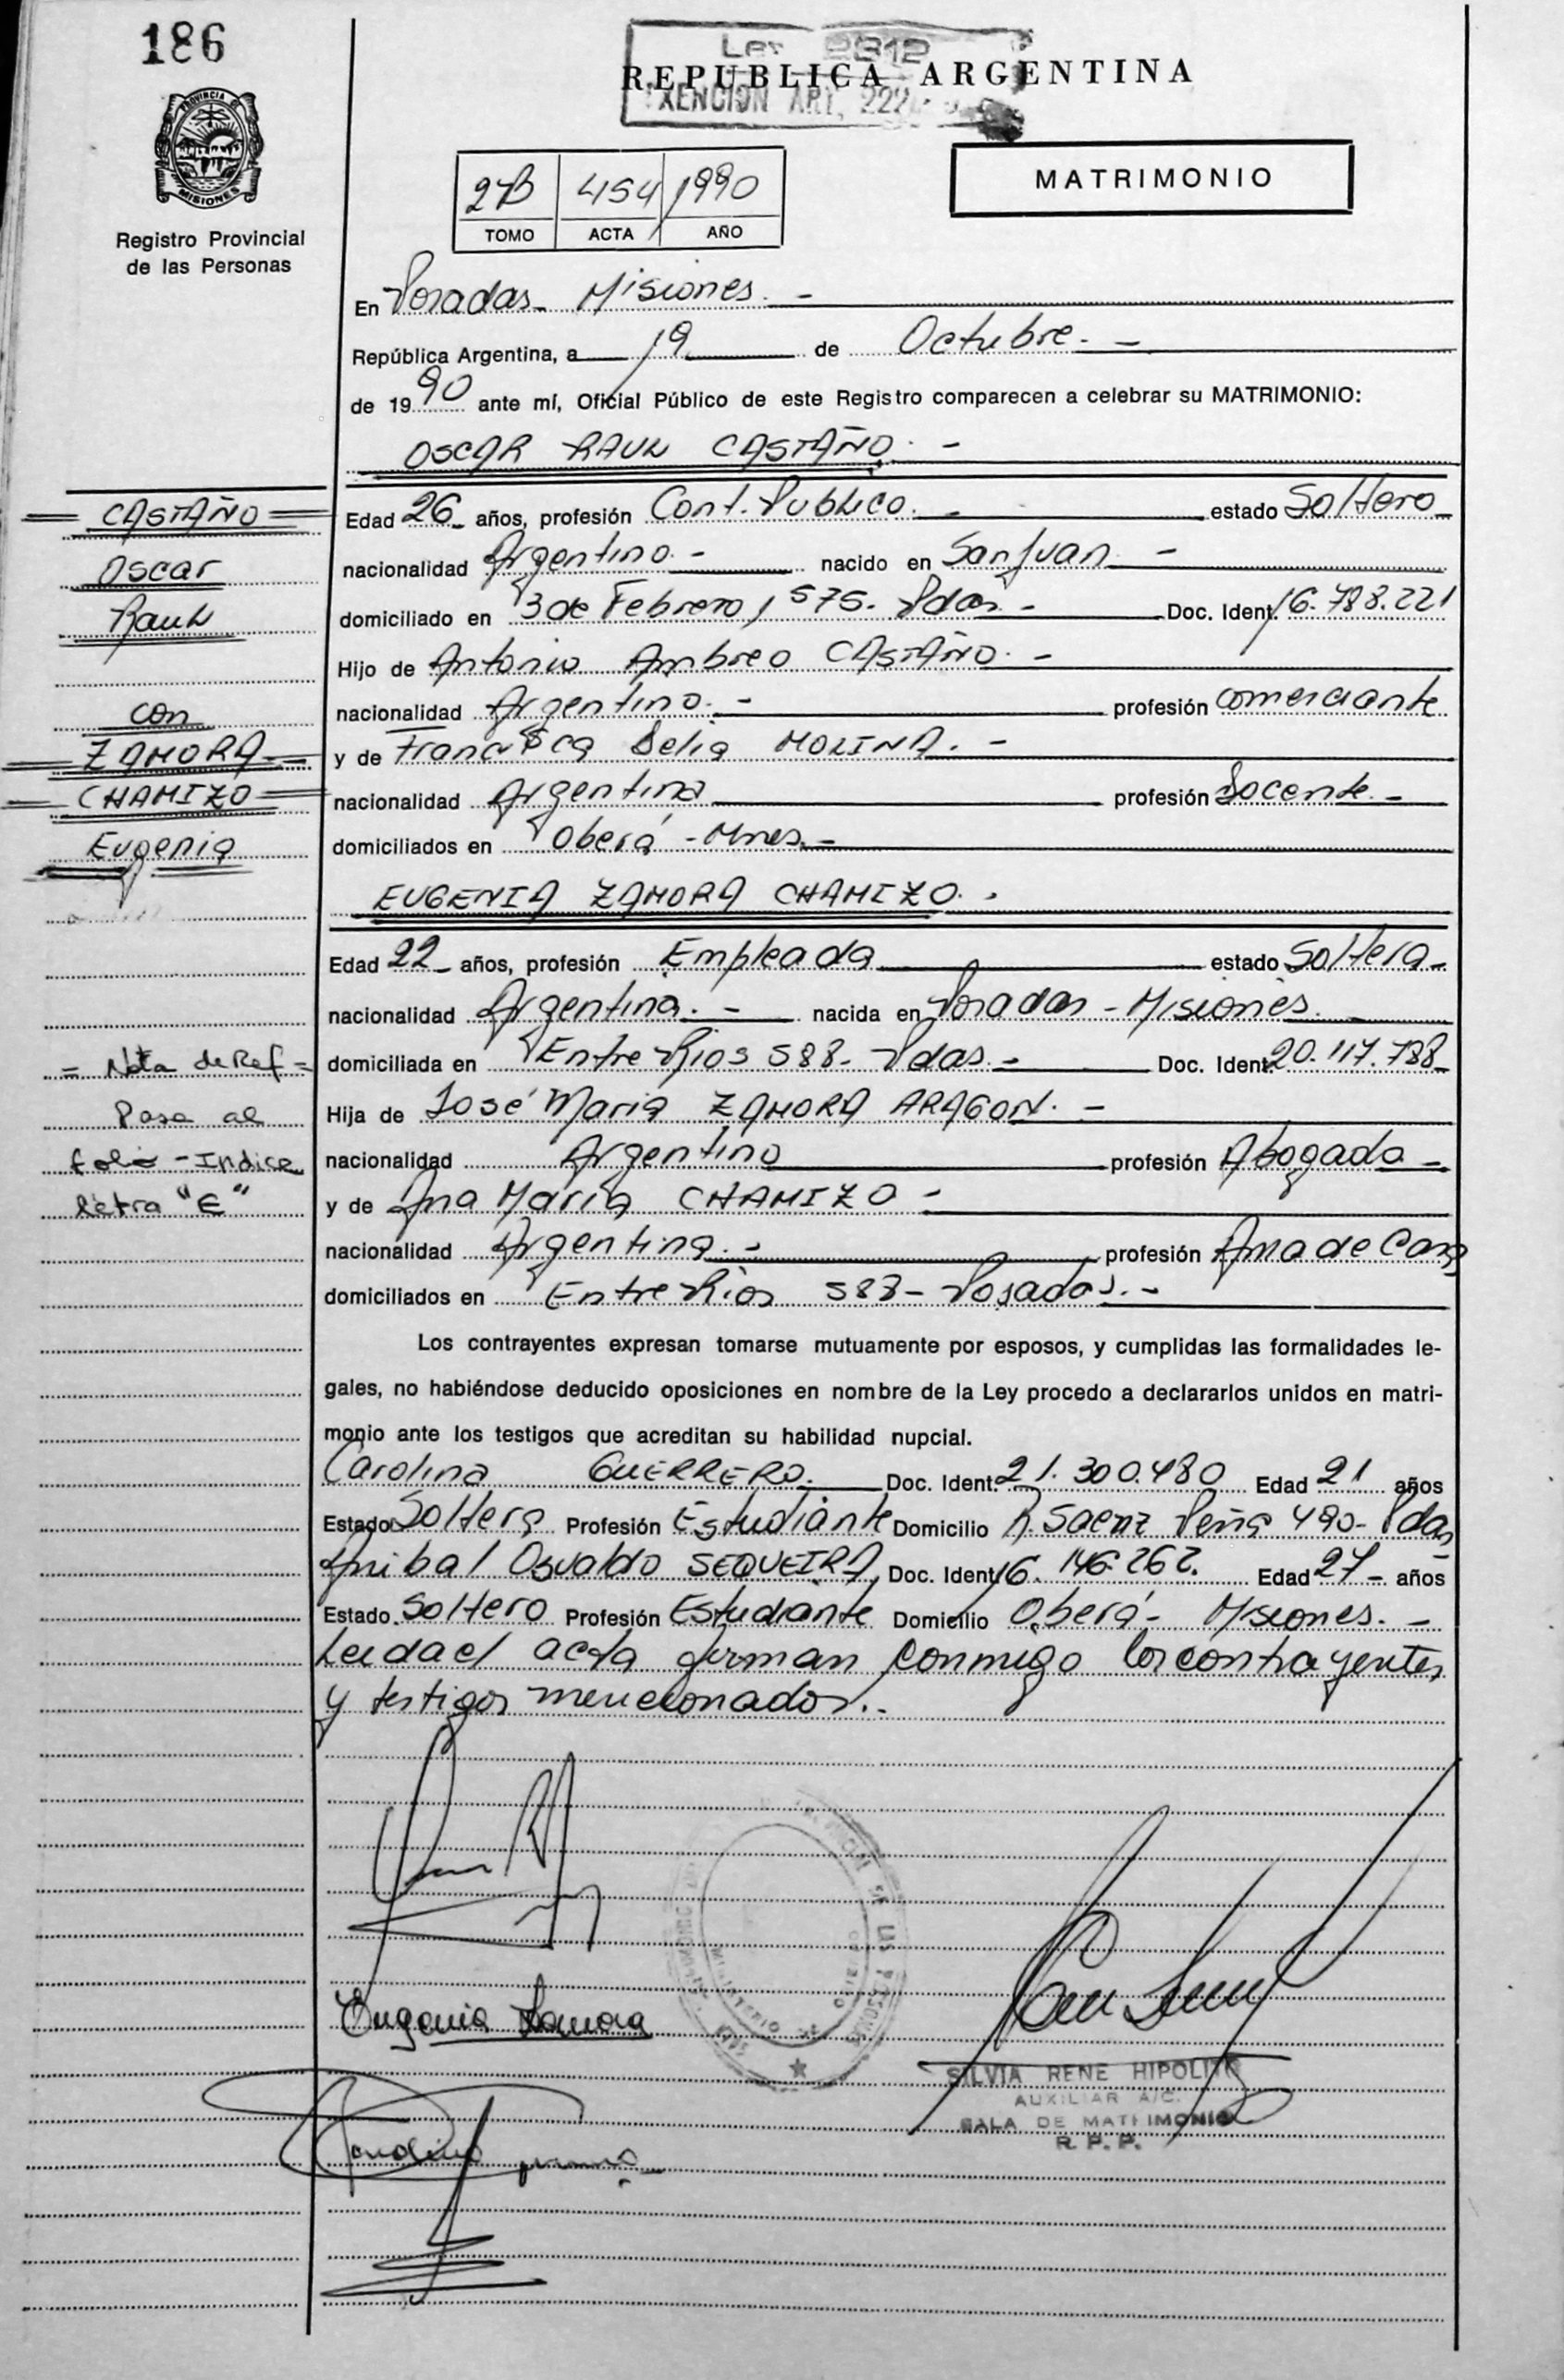 186
PROVINCIA DE
MISIONES
Registro Provincial
de las Personas
Ley 2812
EXENCION ART. 222
REPUBLICA ARGENTINA
MATRIMONIO
2B 454 1990
TOMO ACTA AÑO
En Posadas - Misiones. -
República Argentina, a 19 de Octubre. -
de 1990 ante mí, Oficial Público de este Registro comparecen a celebrar su MATRIMONIO:
OSCAR RAUL CASTAÑO. -
CASTAÑO
Oscar
Raul
con
ZAMORA
CHAMIZO
Eugenia
Edad 26_ años, profesión Cont. Publico. - estado Soltero_
nacionalidad Argentino. - nacido en San Juan. -
domiciliado en 3 de Febrero 1575. Pdas. - Doc. Ident. 16.788.221
Hijo de Antonio Ambreo CASTAÑO. -
nacionalidad Argentino. - profesión comerciante
y de Francisca Delia MOLINA. -
nacionalidad Argentina profesión Docente. -
domiciliados en Oberá - Mnes. -
EUGENIA ZAMORA CHAMIZO. -
Edad 22_ años, profesión Empleada estado Soltera_
nacionalidad Argentina. - nacida en Posadas - Misiones.
domiciliada en Entre Rios 588- Pdas. - Doc. Ident. 20.117.788_
Hija de José Maria ZAMORA ARAGON. -
nacionalidad Argentino profesión Abogado -
y de Ana Maria CHAMIZO -
nacionalidad Argentina. - profesión Ama de Casa
domiciliados en Entre Rios 588 - Posadas. -
= Nota de Ref =
Pasa al
folio - Indice
letra "E"
Los contrayentes expresan tomarse mutuamente por esposos, y cumplidas las formalidades le-
gales, no habiéndose deducido oposiciones en nombre de la Ley procedo a declararlos unidos en matri-
monio ante los testigos que acreditan su habilidad nupcial.
Carolina GUERRERO. Doc. Ident. 21.300.480 Edad 21 años
Estado Soltera Profesión Estudiante Domicilio R. Saenz Peña 490- Pdas
Anibal Osvaldo SEQUEIRA, Doc. Ident. 16.146.262. Edad 27 - años
Estado Soltero Profesión Estudiante Domicilio Oberá - Misiones. -
Leida el acta firman conmigo los contrayentes
y testigos mencionados. -
Eugenia Zamora
MINISTERIO DE GOBIERNO
SILVIA RENE HIPOLITO
AUXILIAR A/C.
SALA DE MATRIMONIO
R. P. P.
Carolina Guerrero